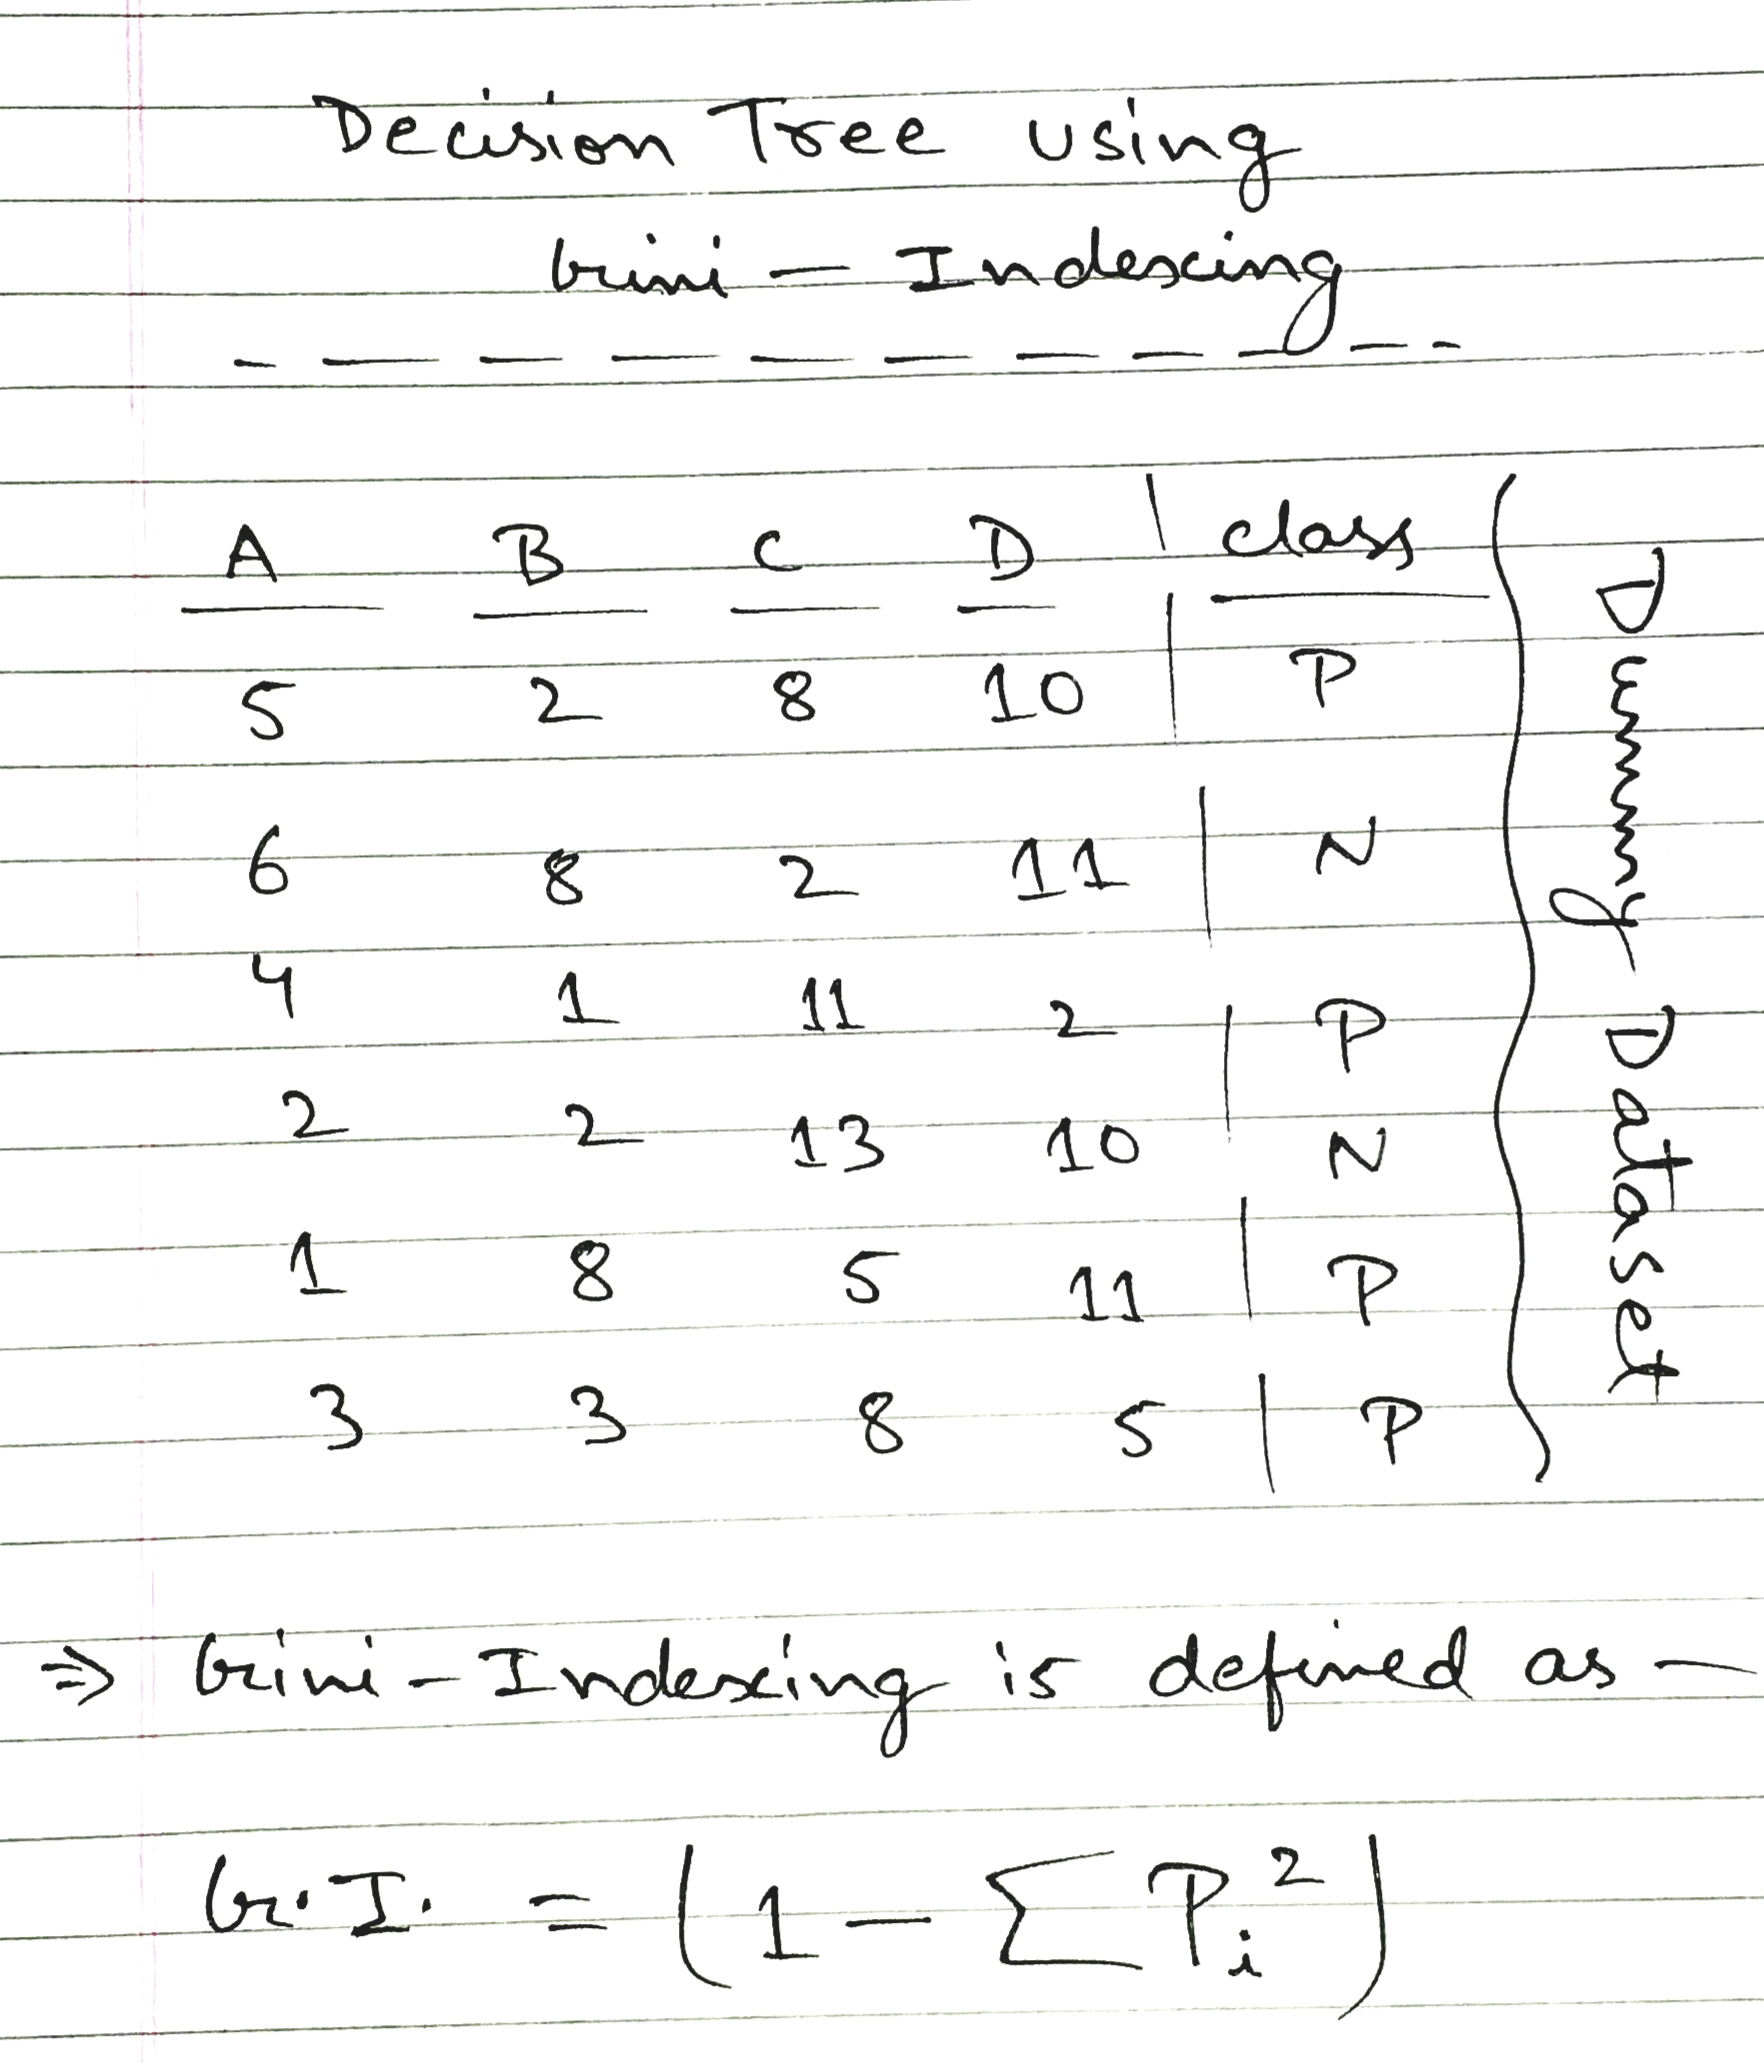 Decision Tree using
Gini - Indexing
A B C D | class
5 2 8 10 | P
6 8 2 11 | N
4 1 11 2 | P
2 2 13 10 | N
1 8 5 11 | P
3 3 8 5 | P
Dummy Dataset
⇒ Gini - Indexing is defined as -
G.I. = (1 - ∑ Pᵢ²)